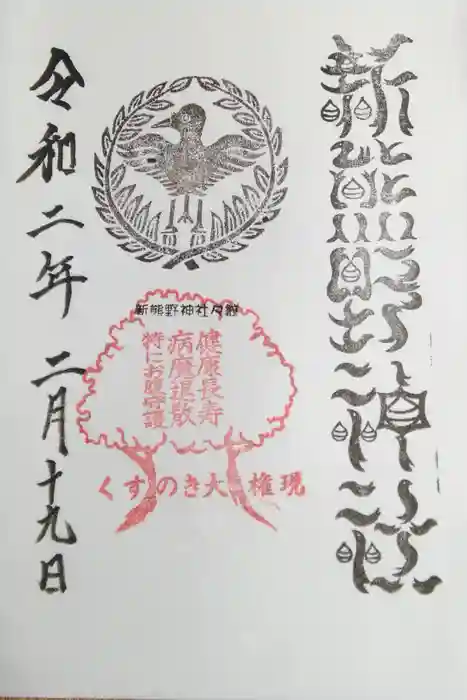 新熊野神社
新熊野神社々紋
健康長寿
病魔退散
特にお腹守護
くすのき大権現
令和二年 二月十九日